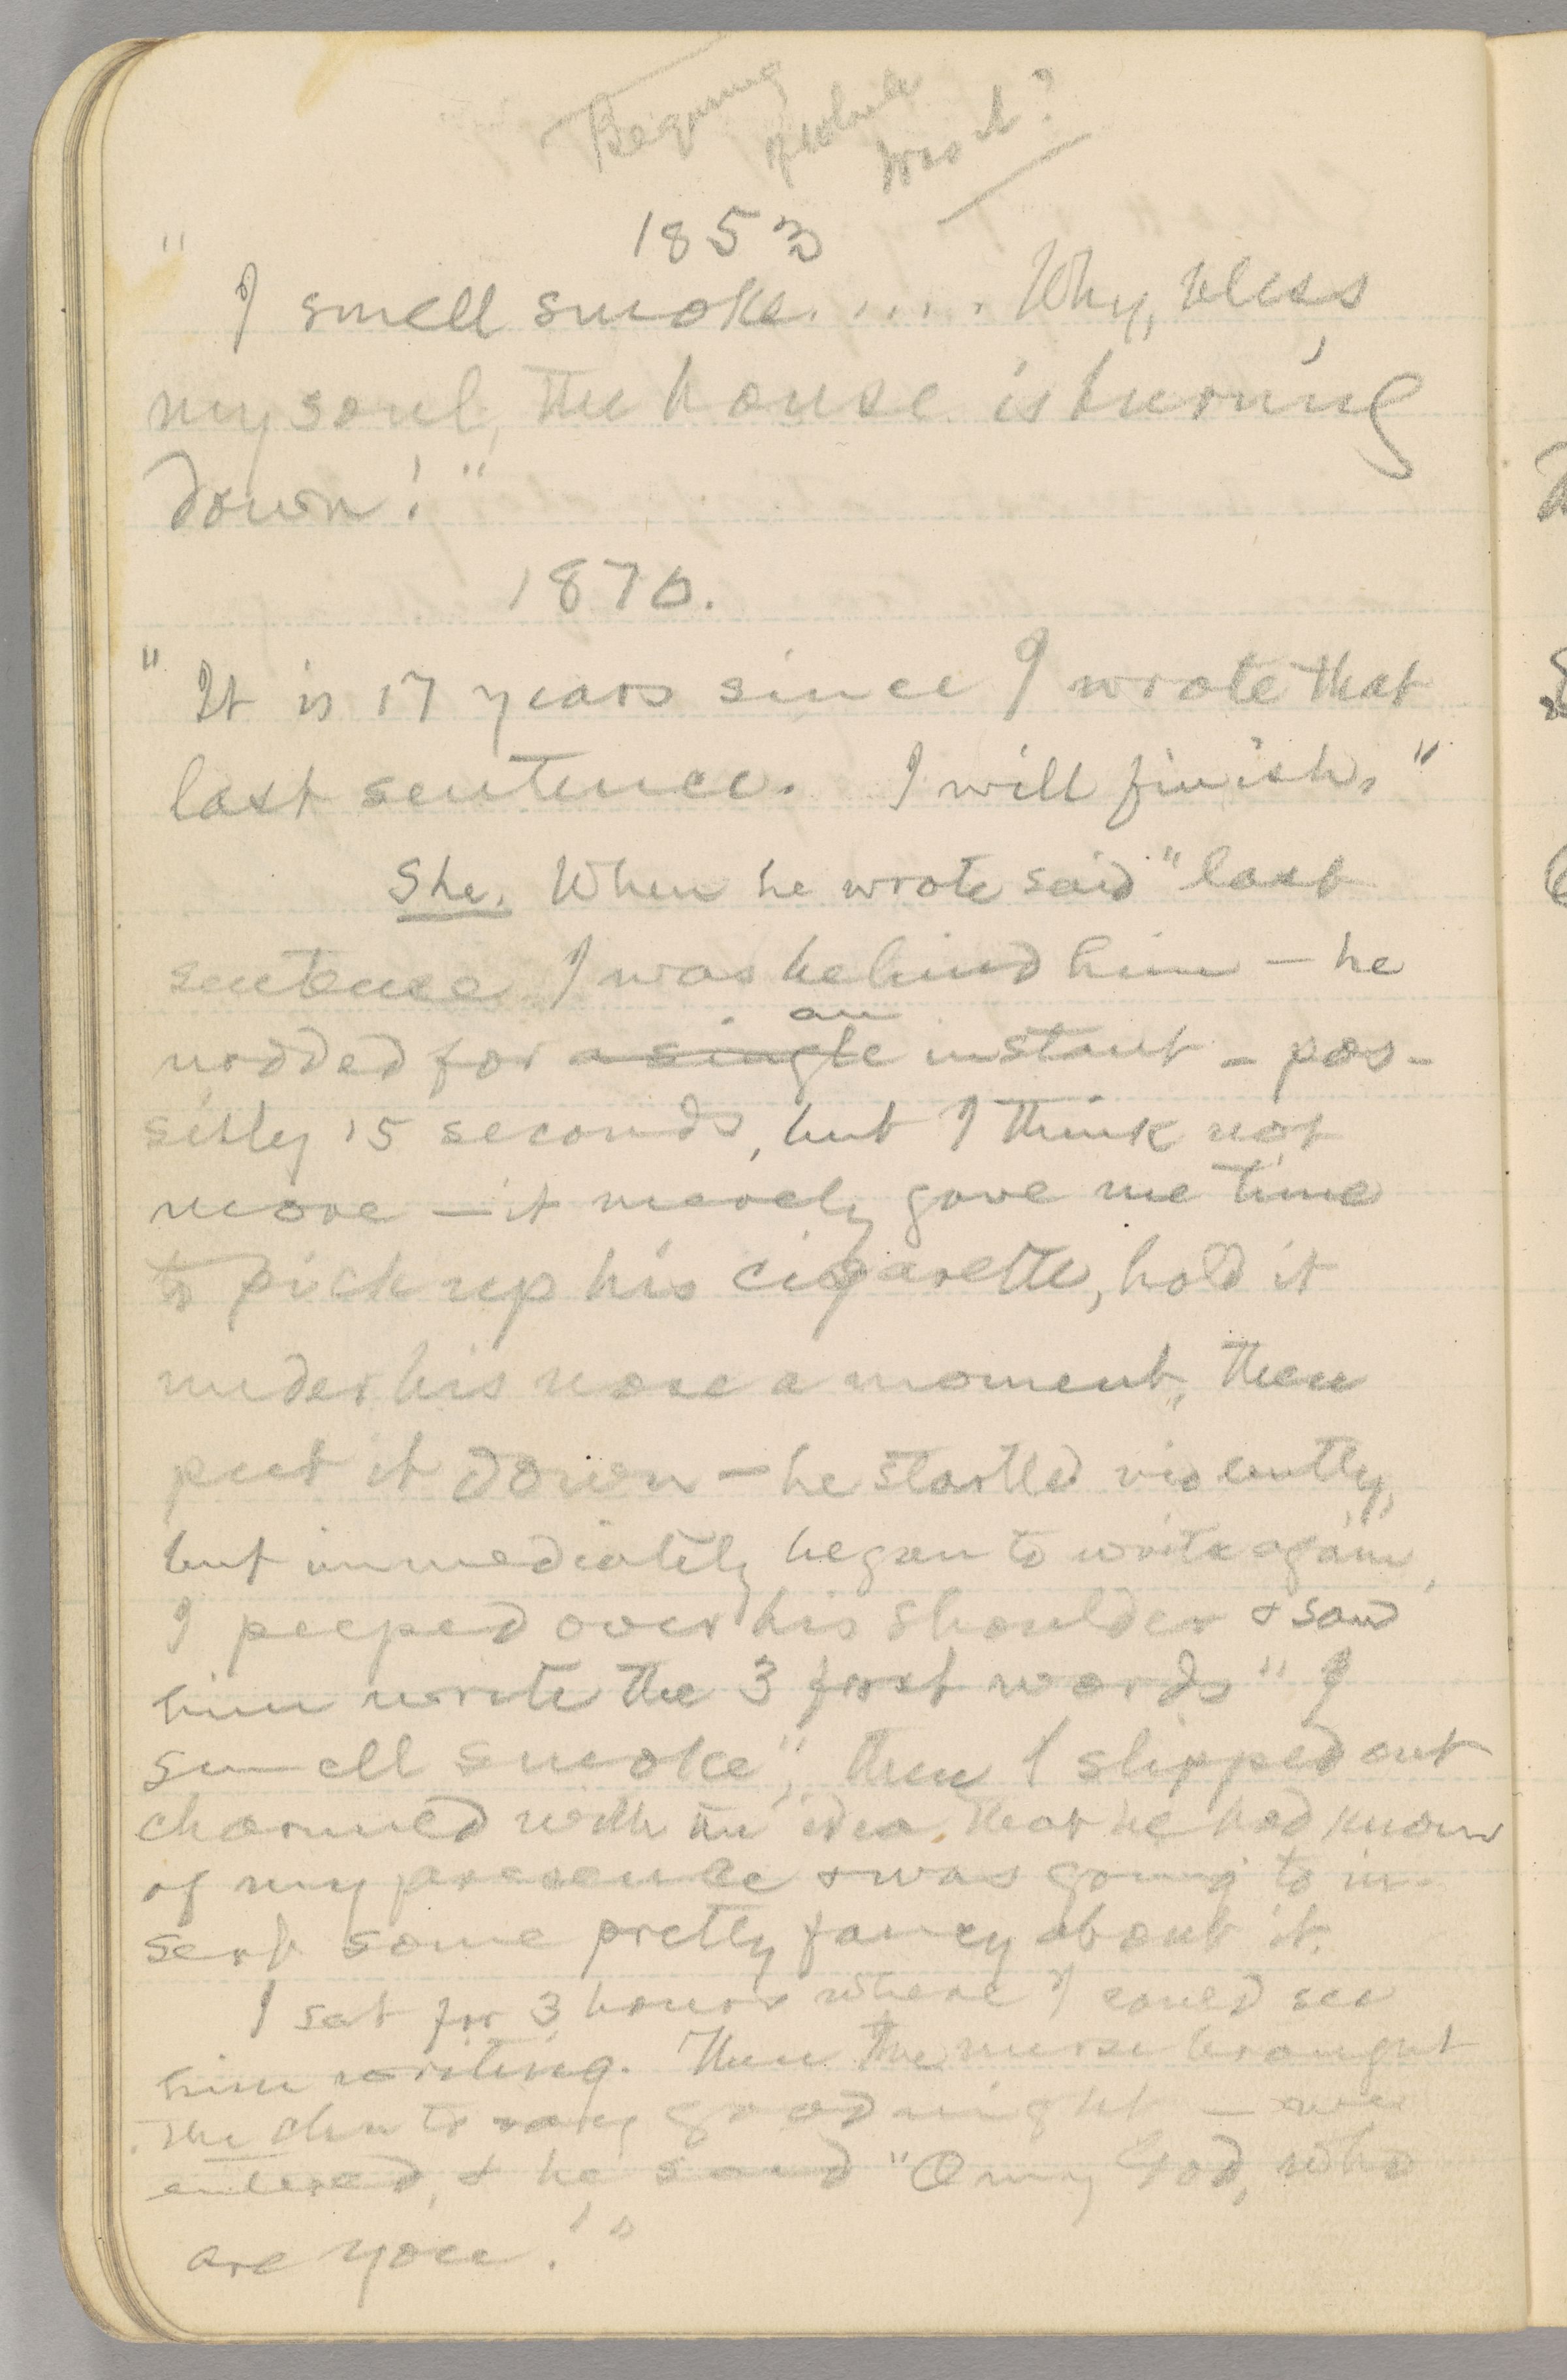 was it?
1853
"
I smell smoke..... Why, bless
my soul, the house is burning
down!"
1870.
"It is 17 years since I wrote that
last sentence. I will finish."
She. When he wrote said "last
sentence I was behind him — he
an
nodded for a single instant — pos-
sibly 15 seconds, but I think not
more — it merely gave me time
to pick up his cigarette, hold it
under his nose a moment, then
put it down — he startled violently,
but immediately began to write again,
I peeped over his shoulder & saw
him write the 3 first words "I
smell smoke", then I slipped out
charmed with idea that he had known
of my presence & was going to in-
sert some pretty fancy about it.
I sat for 3 hours where I could see
him writing. Then the nurse brought
the chn to say good night — we
entered, & he said "O my God, who
are you!"